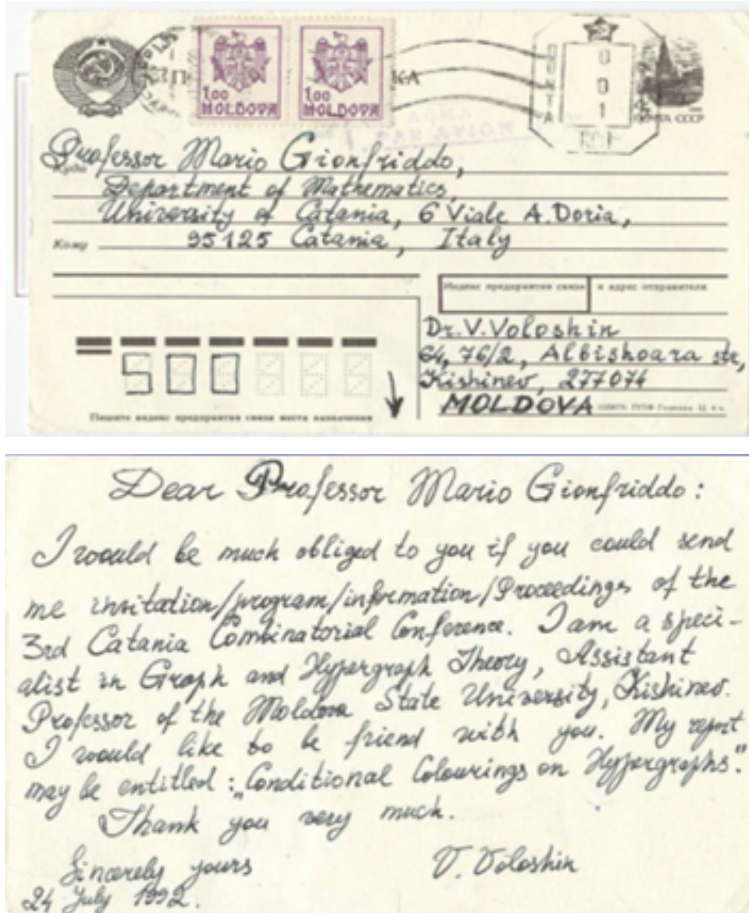 1.00
MOLDOVA
1.00
MOLDOVA
КА
ПОЧТА
0
0
1
ПОЧТА СССР
Куда
Professor Mario Gionfriddo,
Department of Mathematics,
University of Catania, 6 Viale A. Doria,
Кому
95125 Catania, Italy
Индекс предприятия связи и адрес отправителя
Dr. V. Voloshin
64, 76/2, Albishoara str,
Kishinev, 277074
MOLDOVA
500
Пишите индекс предприятия связи места назначения
Dear Professor Mario Gionfriddo:
I would be much obliged to you if you could send
me invitation/program/information/Proceedings of the
3rd Catania Combinatorial Conference. I am a speci-
alist in Graph and Hypergraph Theory, Assistant
Professor of the Moldova State University, Kishinev.
I would like to be friend with you. My report
may be entitled: „Conditional Colourings on Hypergraphs."
Thank you very much.
Sincerely yours V. Voloshin
24 July 1992.